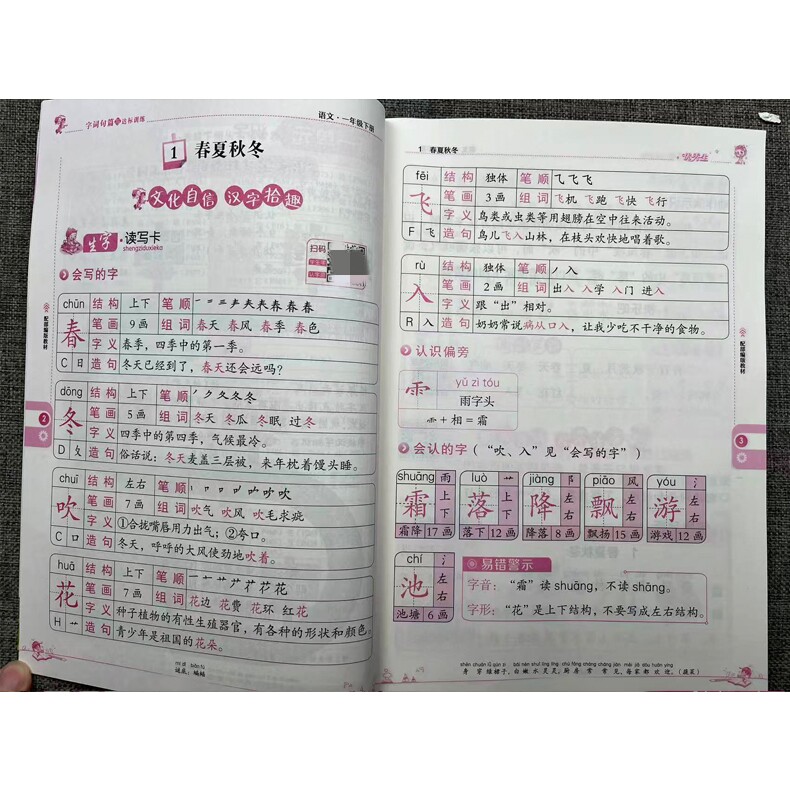 字词句篇与达标训练
语文·一年级下册
1 春夏秋冬
文化自信 汉字拾趣
生字·读写卡
shengziduxieka
扫码
会写的字
chūn 结构 上下 笔顺
春 笔画 9画 组词 春天 春风 春季 春色
字义 春季,四季中的第一季。
C 日 造句 冬天已经到了,春天还会远吗?
dōng 结构 上下 笔顺
冬 笔画 5画 组词 冬天 冬瓜 冬眠 过冬
字义 四季中的第四季,气候最冷。
D 夂 造句 俗话说:冬天麦盖三层被,来年枕着馒头睡。
chuī 结构 左右 笔顺
吹 笔画 7画 组词 吹气 吹风 吹毛求疵
字义 ①合拢嘴唇用力出气;②夸口。
C 口 造句 冬天,呼呼的大风使劲地吹着。
huā 结构 上下 笔顺
花 笔画 7画 组词 花边 花费 花环 红花
字义 种子植物的有性生殖器官,有各种的形状和颜色。
H 艹 造句 青少年是祖国的花朵。
mí dǐ biān fú
谜底:蝙蝠
配部编版教材
2
1 春夏秋冬
fēi 结构 独体 笔顺 ⺄飞飞
飞 笔画 3画 组词 飞机 飞跑 飞快 飞行
字义 鸟类或虫类等用翅膀在空中往来活动。
F 飞 造句 鸟儿飞入山林,在枝头欢快地唱着歌。
rù 结构 独体 笔顺 丿入
入 笔画 2画 组词 出入 入学 入门 进入
字义 跟“出”相对。
R 入 造句 奶奶常说病从口入,让我少吃不干净的食物。
认识偏旁
yǔ zì tóu
⻗ 雨字头
⻗+相=霜
会认的字(“吹、入”见“会写的字”)
shuāng 雨 luò 艹 jiàng 阝 piāo 风 yóu 氵
霜 上下 落 上下 降 左右 飘 左右 游 左右
霜降 17画 落下 12画 降落 8画 飘扬 15画 游戏 12画
chí 氵
池 左右
池塘 6画
易错警示
字音:“霜”读shuāng,不读shāng。
字形:“花”是上下结构,不要写成左右结构。
配部编版教材
3